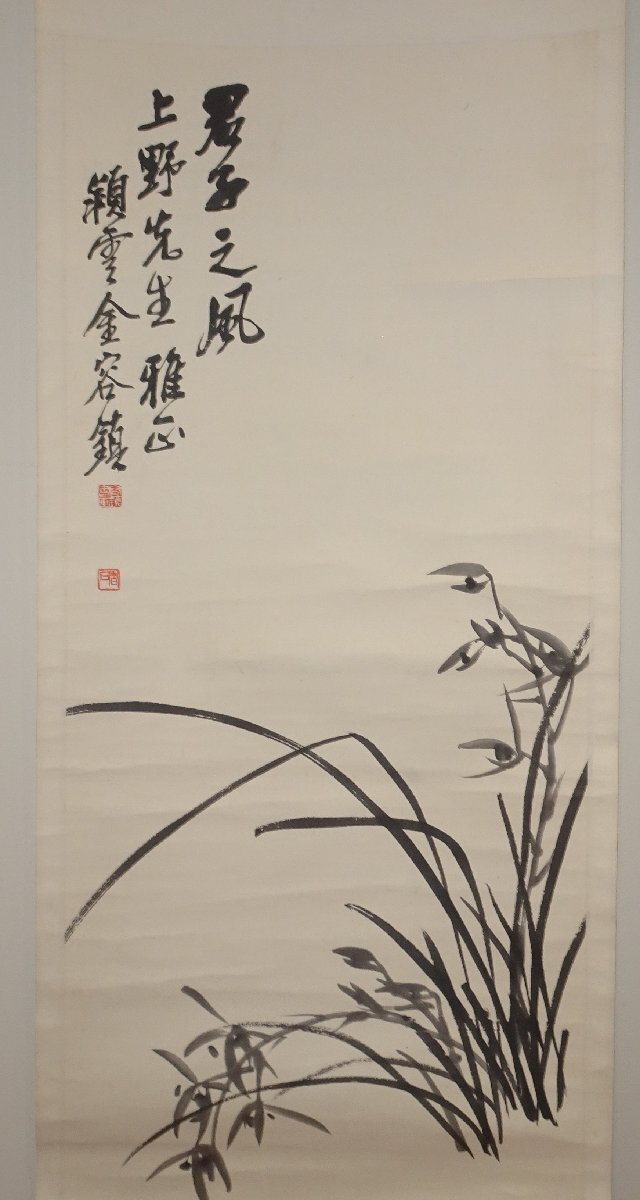 君子之風
上野先生雅正
穎雲金容鎮